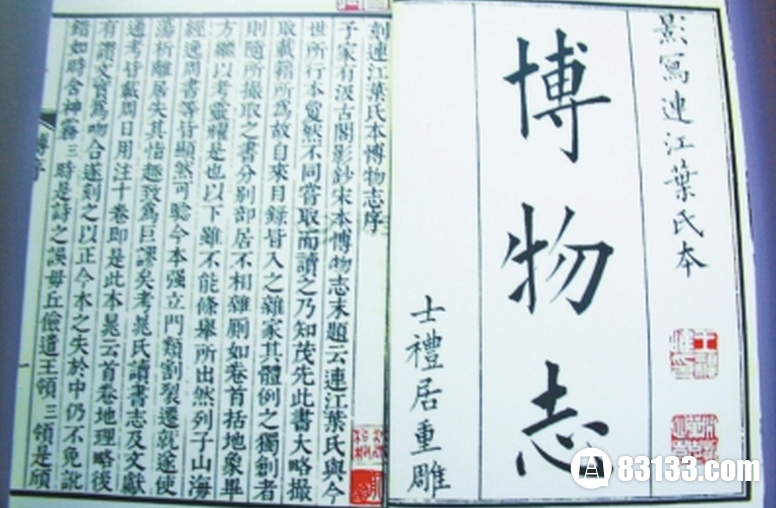 影寫連江葉氏本
博物志
士禮居重雕
刻連江葉氏本博物志序
予家有汲古閣影鈔宋本博物志末題云連江葉氏與今
世所行本夐然不同嘗取而讀之乃知茂先此書大略撮
取載籍所爲故自來目錄皆入之雜家其體例之獨創者
則隨所撮取之書分別部居不相雜厠如卷首括地象畢
方繼以考靈耀是也以下雖不能條舉所出然列子山海
經逸周書等皆顯然可驗今本强立門類割裂遷就遂使
蕩析離居失其指趣致爲巨謬矣考晁氏讀書志及文獻
通考皆載周日用注十卷即是此本晁云首卷地理略後
有讚文實爲吻合遂刻之以正今本之失於中仍不免訛
錯如時含神霧三時是詩之誤毋丘儉遣王領三領是頎
83133.com